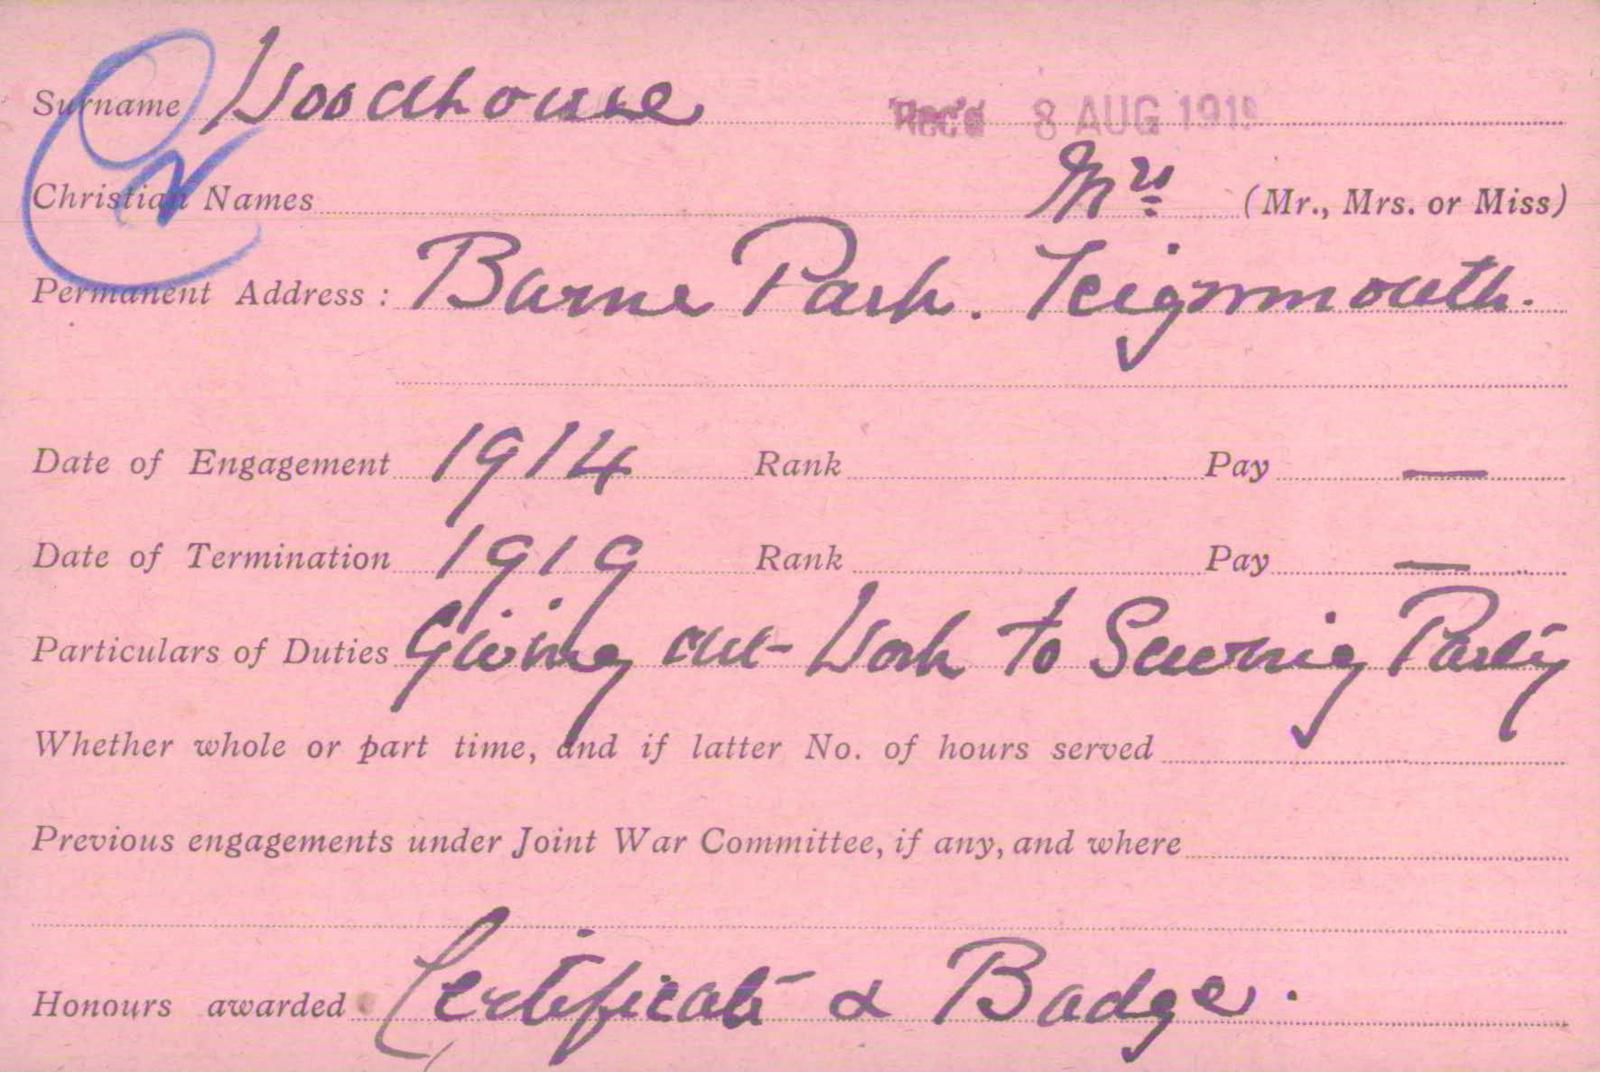 Surname Woodhouse Rec'd 8 AUG 1919
Christian Names Mrs (Mr., Mrs. or Miss)
Permanent Address : Barne Park. Teignmouth.
Date of Engagement 1914 Rank Pay —
Date of Termination 1919 Rank Pay —
Particulars of Duties Giving out Work to Sewing Party
Whether whole or part time, and if latter No. of hours served
Previous engagements under Joint War Committee, if any, and where
Honours awarded Certificate & Badge.